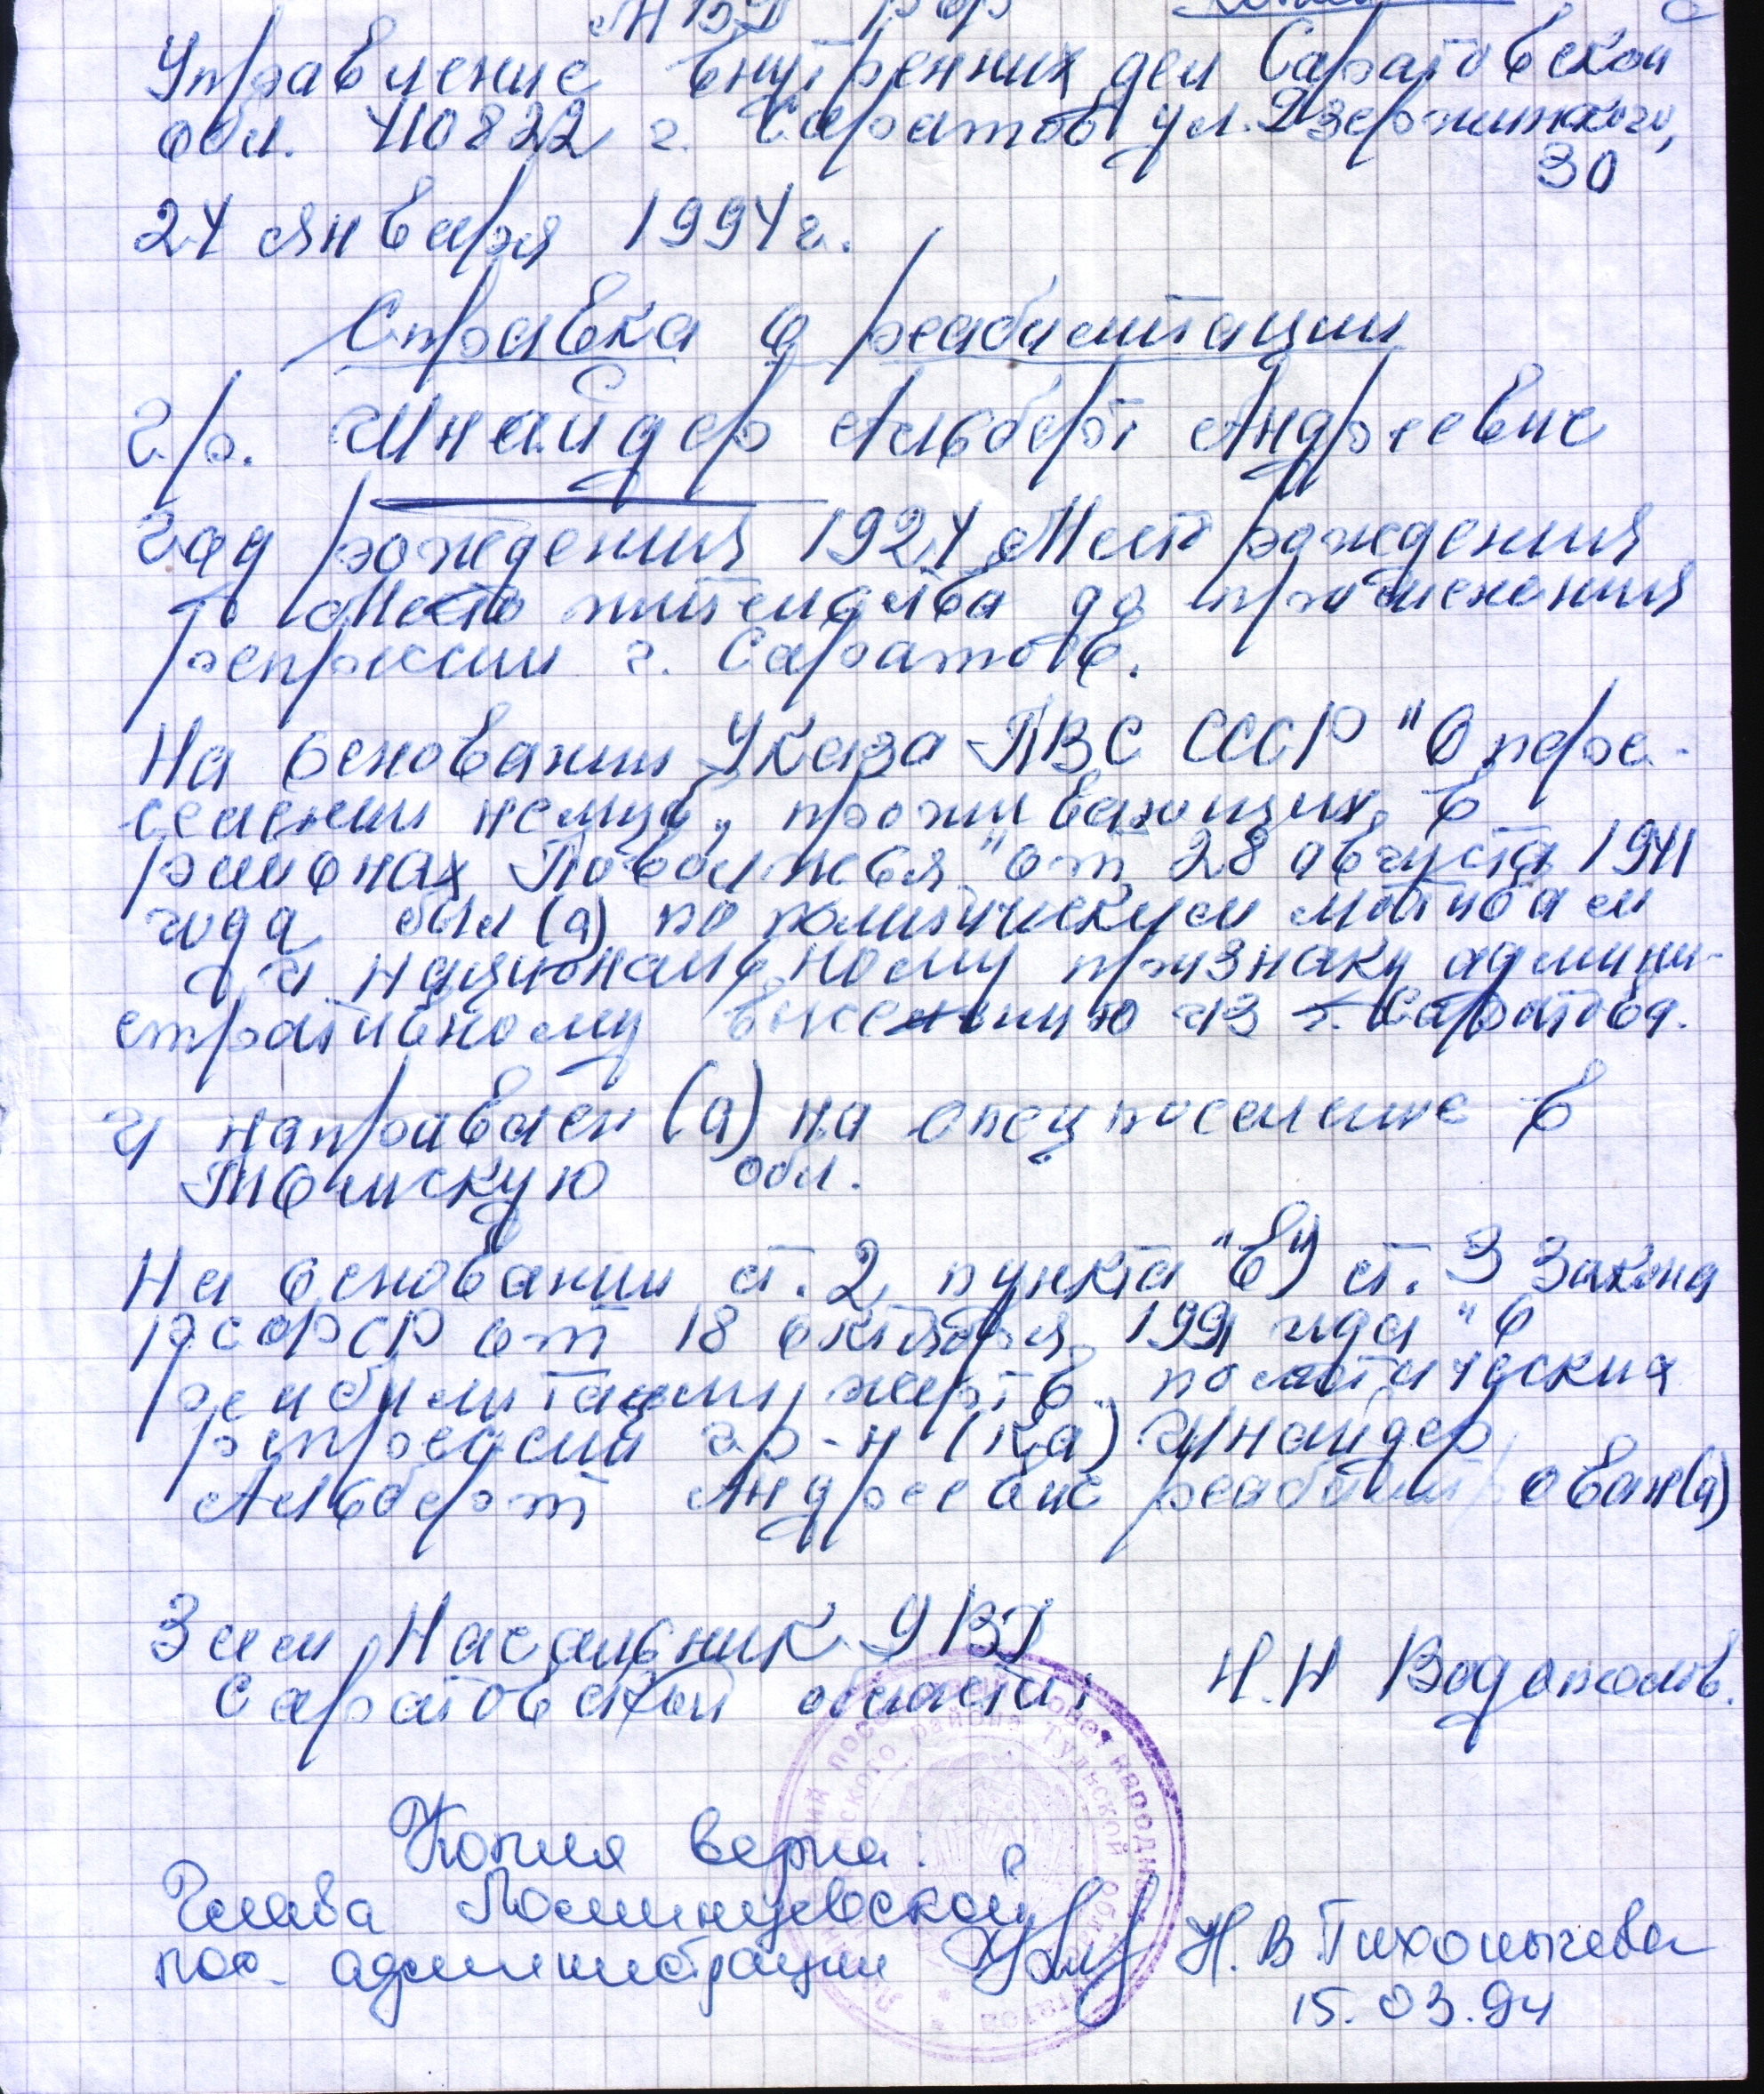 МВД РФ Копия
Управление внутренних дел Саратовской
обл. 410822 г. Саратов ул. Дзержинского,
30
24 января 1994 г.
Справка о реабилитации
Гр. Шнайдер Альберт Андреевич
Год рождения 1924 Место рождения
Место жительства до применения
репрессии г. Саратов.
На основании Указа ПВС СССР "О пере-
селении немцев, проживающих в
районах Поволжья" от 28 августа 1941
года был (а) по политическим мотивам
и национальному признаку админи-
стративному выселению из г. Саратова.
и направлен (а) на спец поселение в
Томскую обл.
На основании ст. 2, пункта "в" ст. 3 Закона
РСФСР от 18 октября 1991 года "О
реабилитации жертв политических
репрессий гр-н (ка) Шнайдер
Альберт Андреевич реабилитирован(а)
Зам Начальник УВД
Саратовской области: Н.Н Водополов.
Копия верна:
Глава Ломинцевской
пос. администрации Н. В. Тихомычева
15.03.94
района Тульской области